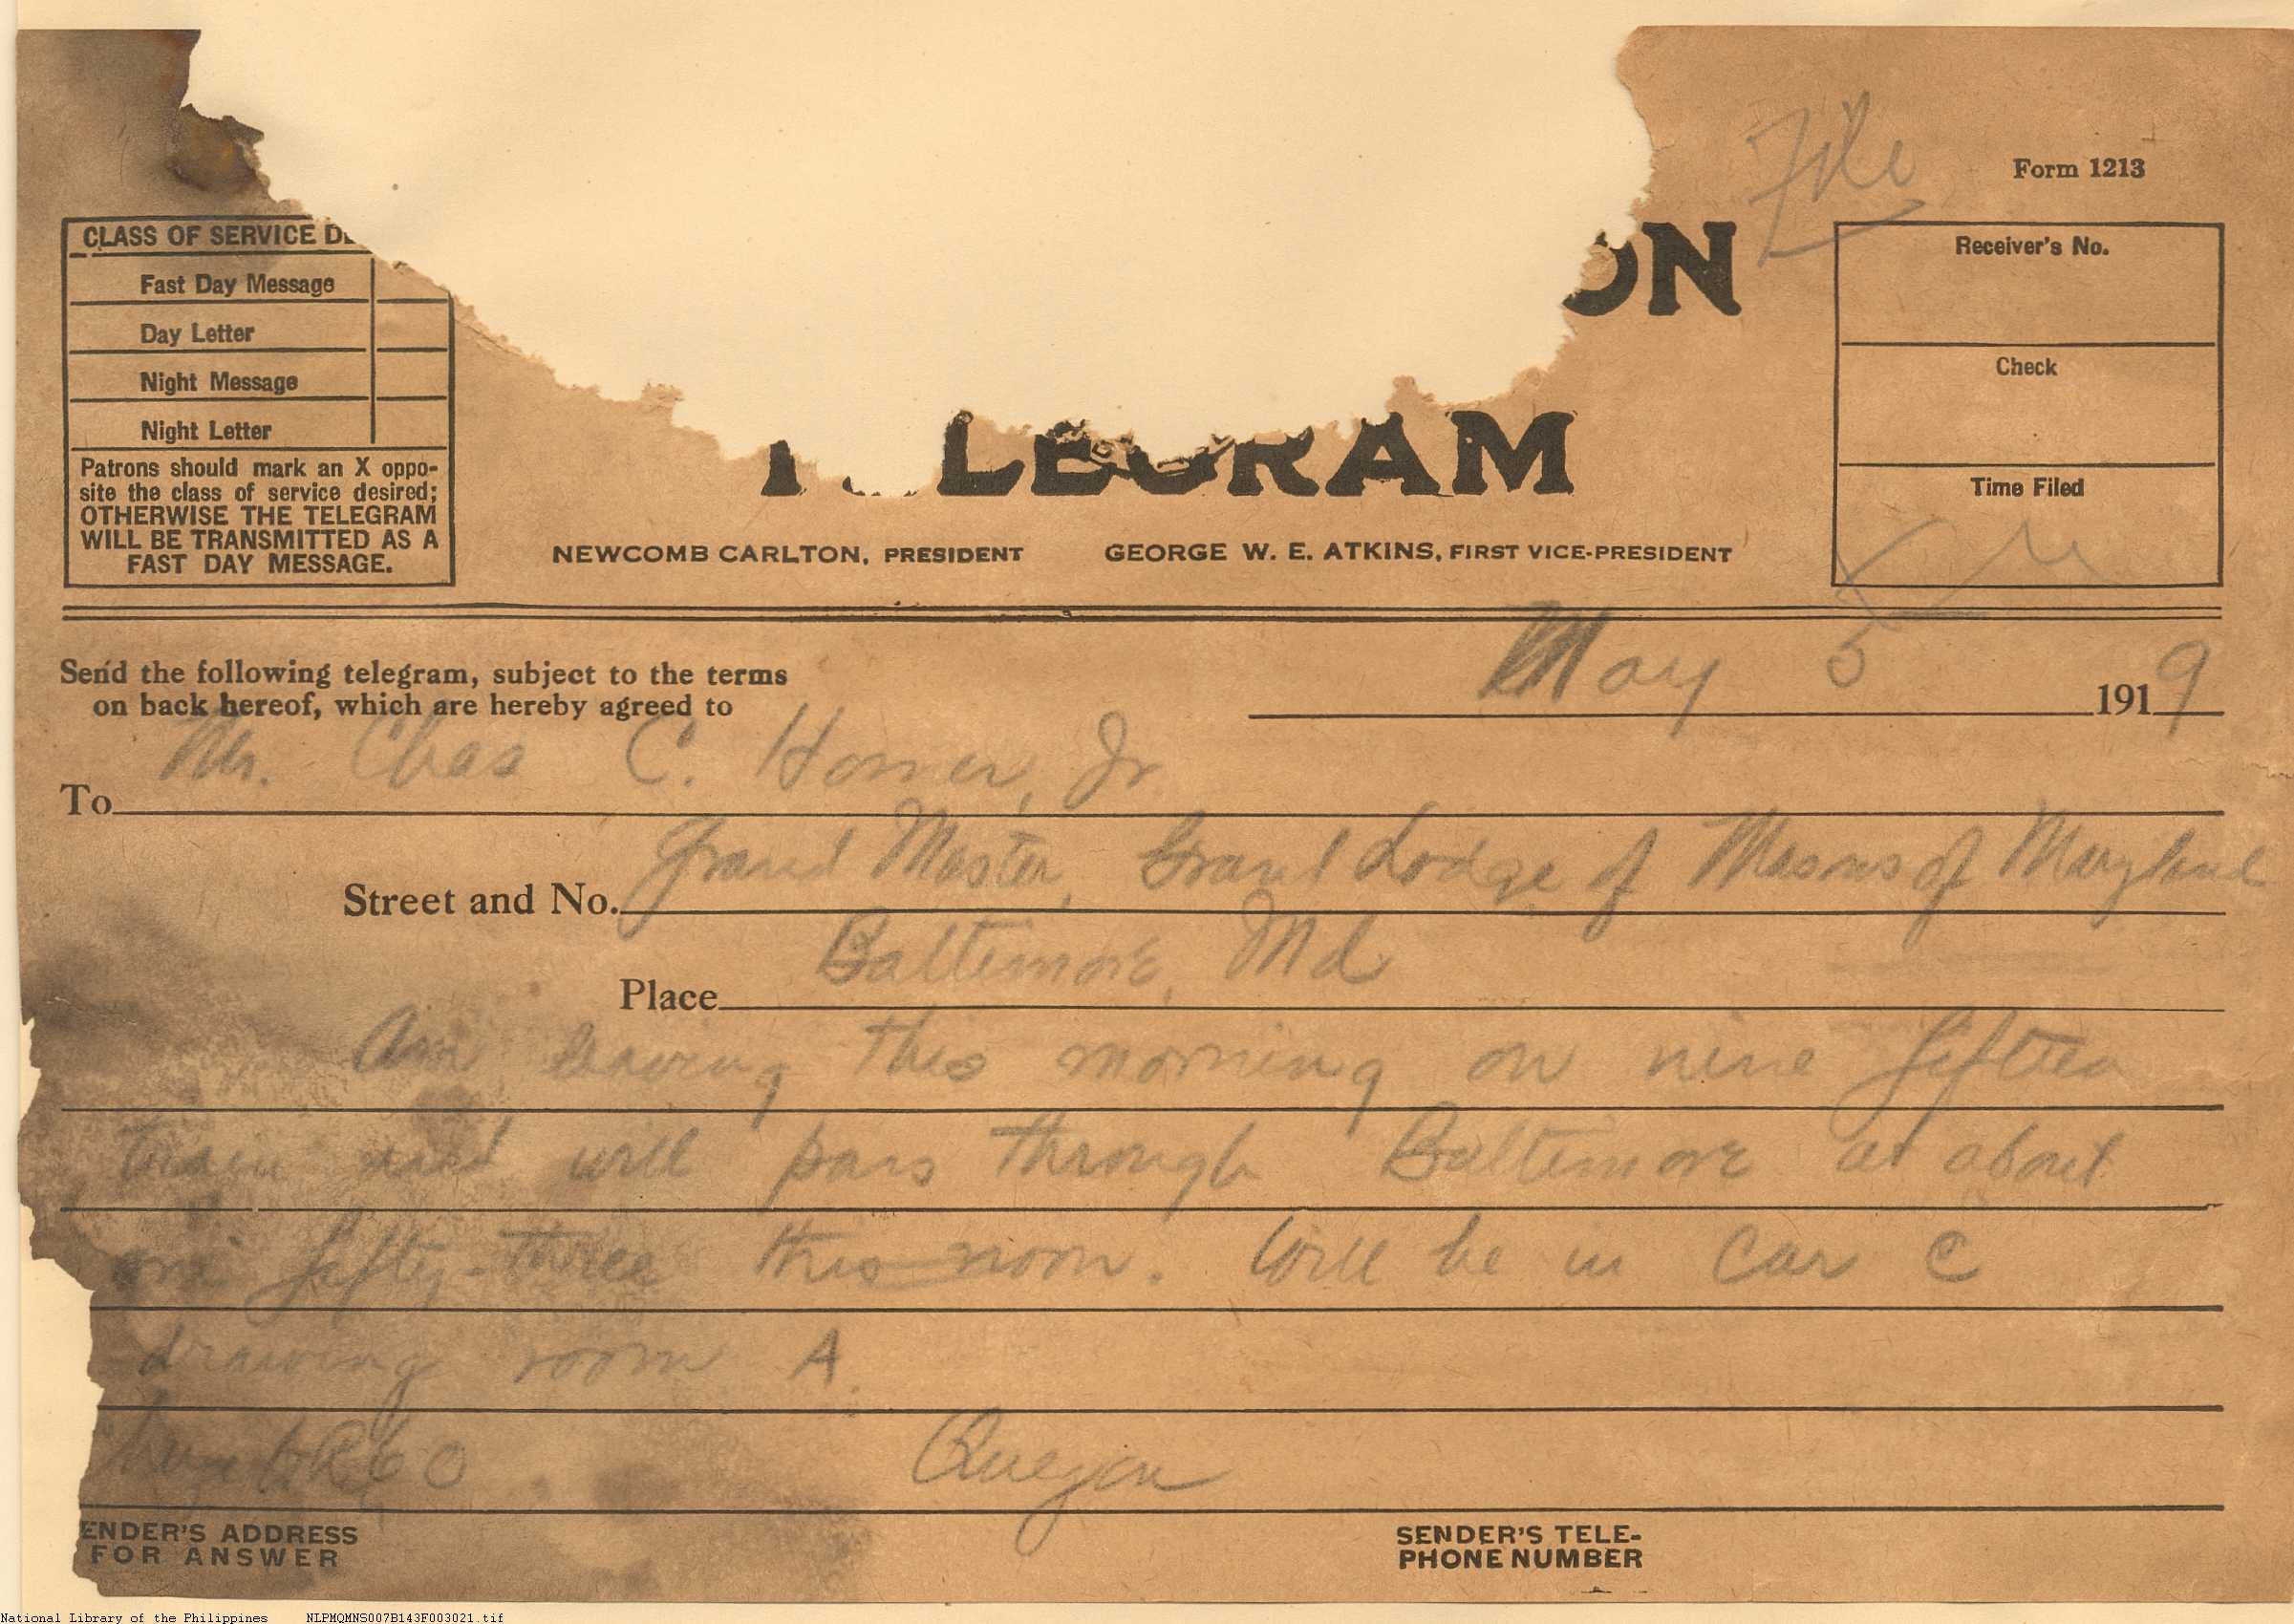 File
Form 1213
CLASS OF SERVICE
Fast Day Message
Day Letter
Night Message
Night Letter
Patrons should mark an X oppo-
site the class of service desired;
OTHERWISE THE TELEGRAM
WILL BE TRANSMITTED AS A
FAST DAY MESSAGE.
ON
TELEGRAM
NEWCOMB CARLTON, PRESIDENT GEORGE W. E. ATKINS, FIRST VICE-PRESIDENT
Receiver's No.
Check
Time Filed
Send the following telegram, subject to the terms
on back hereof, which are hereby agreed to
May 5 1919
To Mr. Chas C. Homer, Jr.
Street and No. Grand Master, Grand Lodge of Masons of Maryland
Place Baltimore, Md
Am leaving this morning on nine fifteen
train and will pass through Baltimore at about
one fifty-three this noon. Will be in Car C
drawing room A.
Quezon
ENDER'S ADDRESS
FOR ANSWER
SENDER'S TELE-
PHONE NUMBER
National Library of the Philippines NLPMQMNS007B143F003021.tif